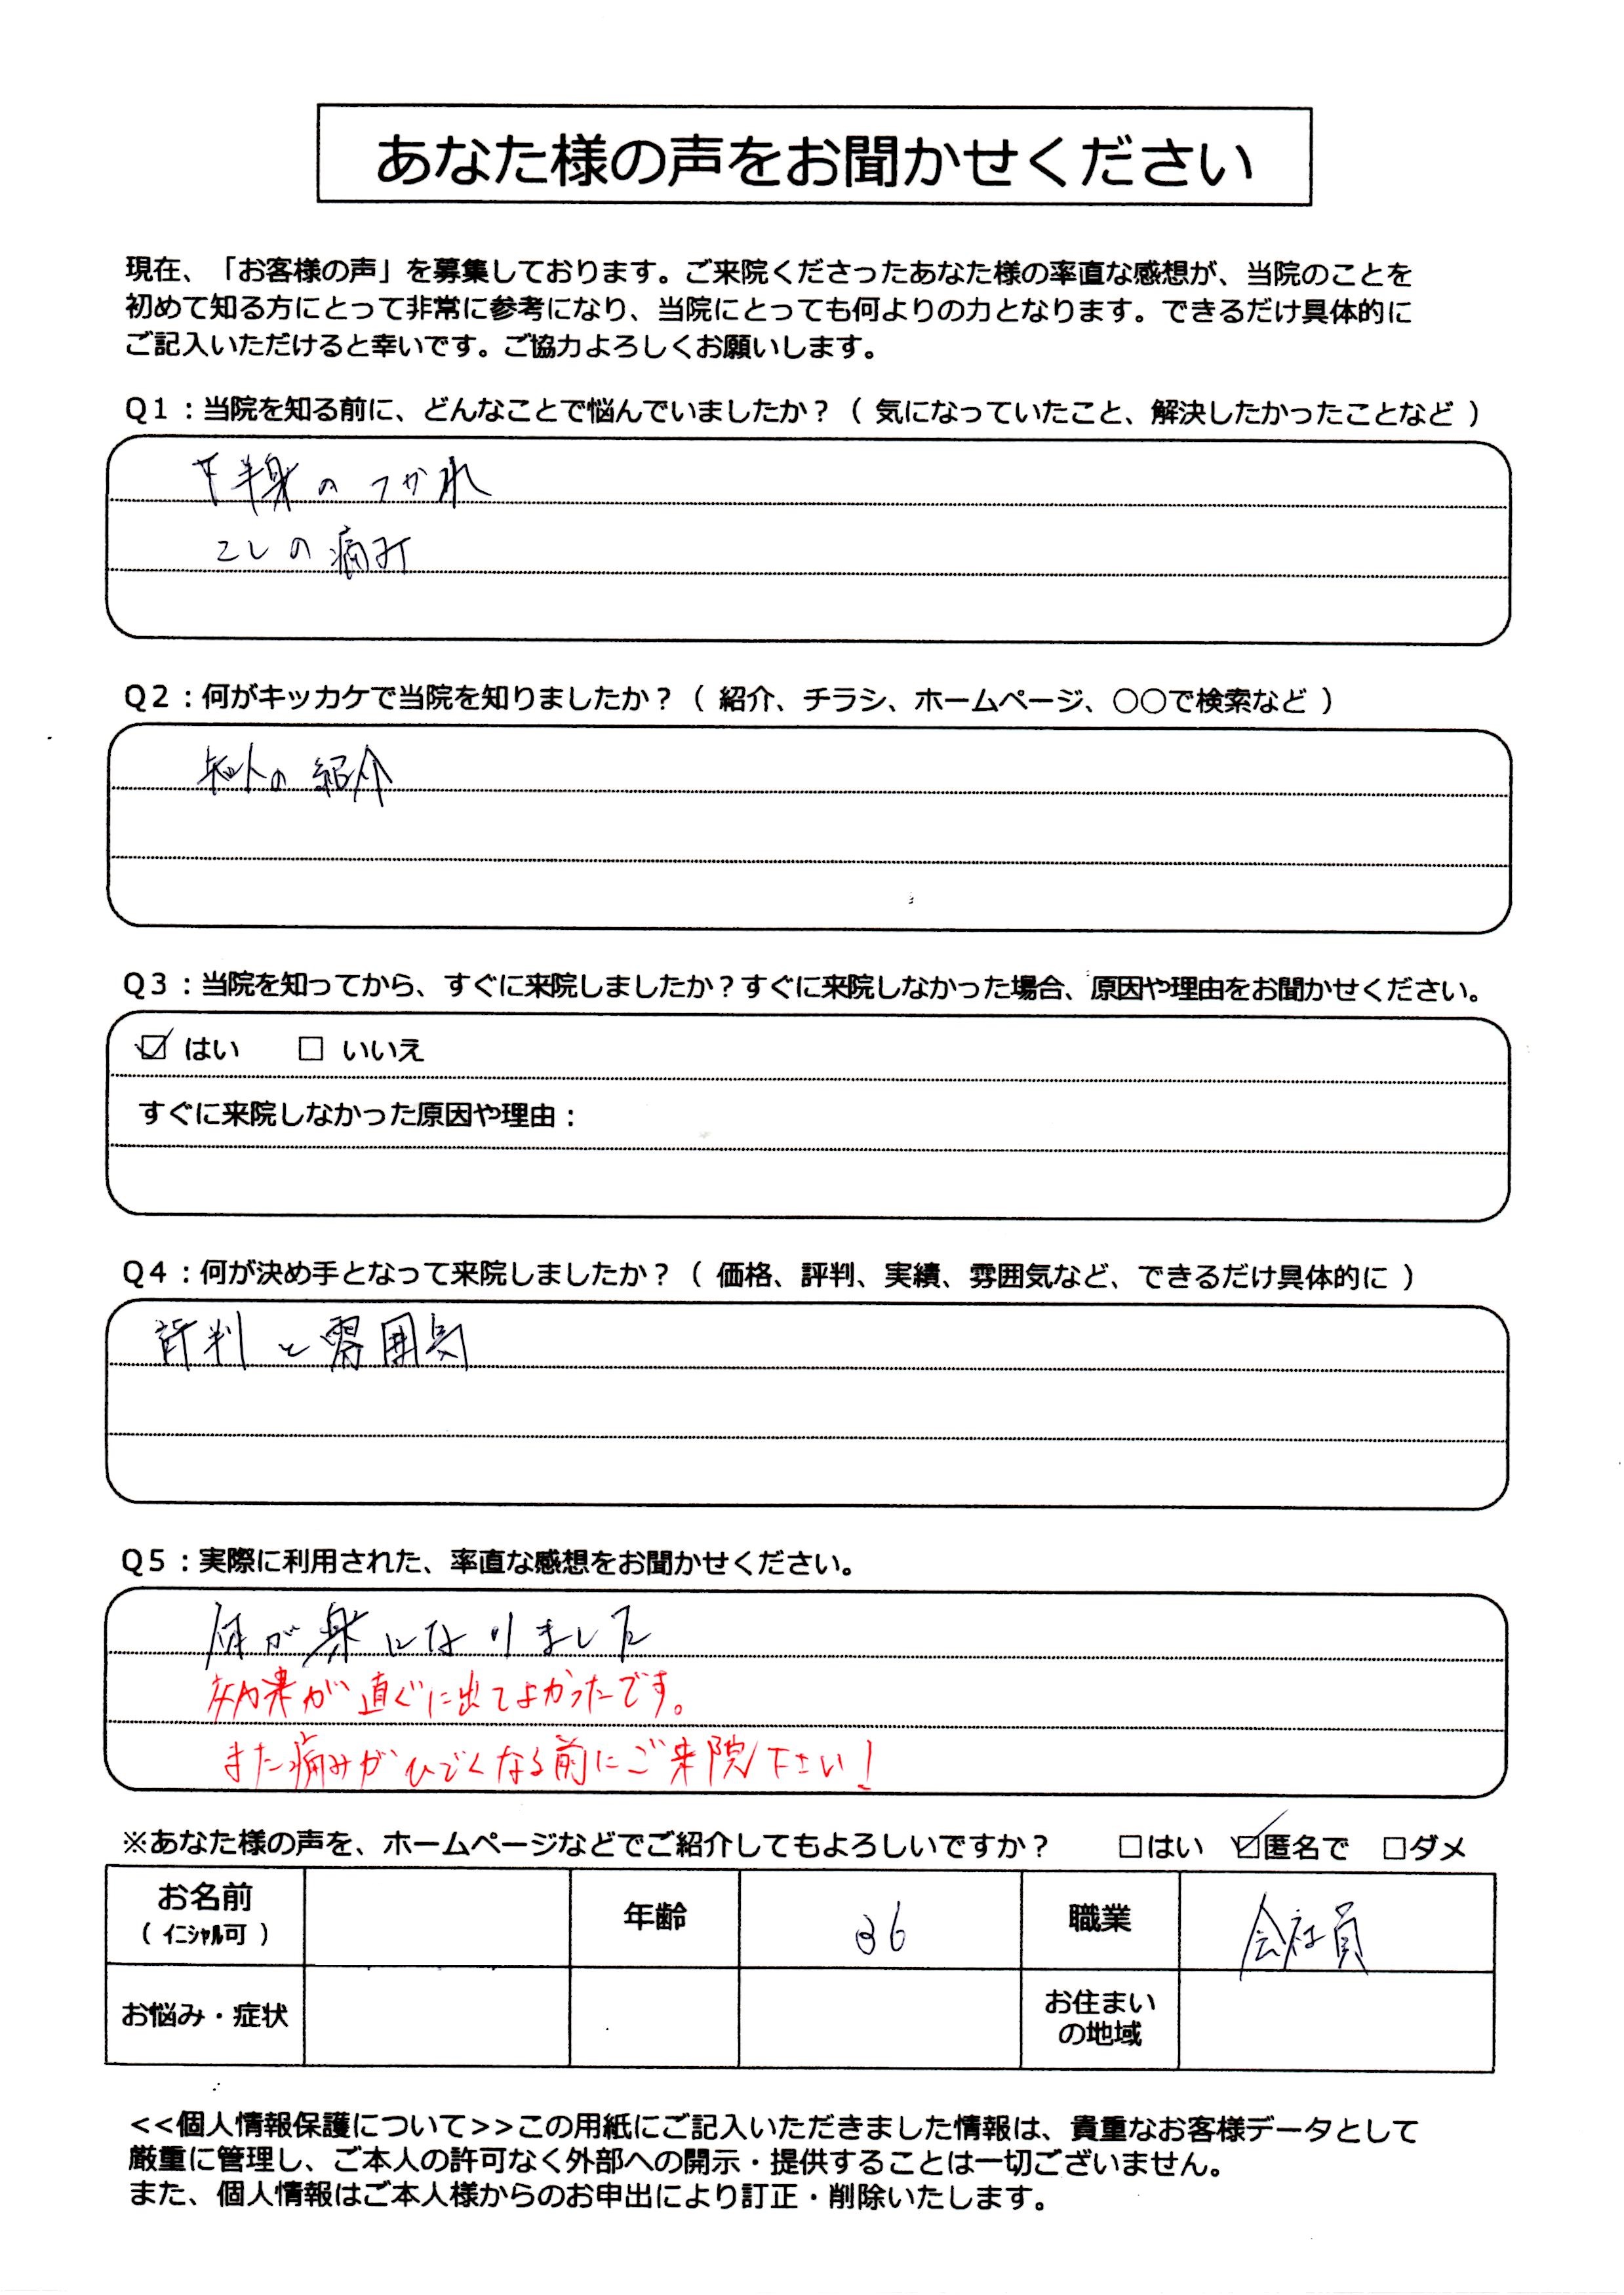 あなた様の声をお聞かせください
現在、「お客様の声」を募集しております。ご来院くださったあなた様の率直な感想が、当院のことを
初めて知る方にとって非常に参考になり、当院にとっても何よりの力となります。できるだけ具体的に
ご記入いただけると幸いです。ご協力よろしくお願いします。
Q1：当院を知る前に、どんなことで悩んでいましたか？（ 気になっていたこと、解決したかったことなど ）
下半身のつかれ
こしの痛み
Q2：何がキッカケで当院を知りましたか？（ 紹介、チラシ、ホームページ、○○で検索など ）
知人の紹介
Q3：当院を知ってから、すぐに来院しましたか？すぐに来院しなかった場合、原因や理由をお聞かせください。
☑ はい □ いいえ
すぐに来院しなかった原因や理由：
Q4：何が決め手となって来院しましたか？（ 価格、評判、実績、雰囲気など、できるだけ具体的に ）
評判と雰囲気
Q5：実際に利用された、率直な感想をお聞かせください。
体が楽になりました
効果が直ぐに出てよかったです。
また痛みがひどくなる前にご来院下さい！
※あなた様の声を、ホームページなどでご紹介してもよろしいですか？ □はい ☑匿名で □ダメ
お名前 年齢 36 職業 会社員
（ イニシャル可 ）
お悩み・症状 お住まい
の地域
<<個人情報保護について>>この用紙にご記入いただきました情報は、貴重なお客様データとして
厳重に管理し、ご本人の許可なく外部への開示・提供することは一切ございません。
また、個人情報はご本人様からのお申出により訂正・削除いたします。